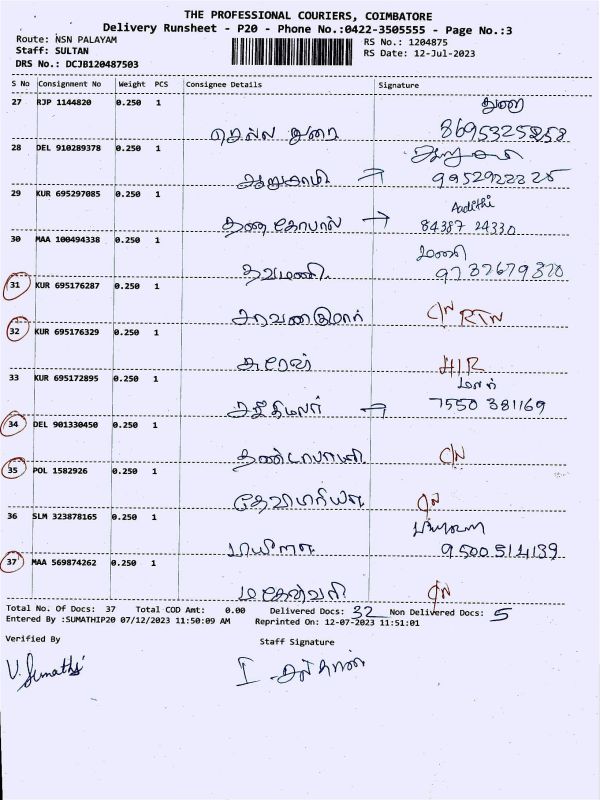 THE PROFESSIONAL COURIERS, COIMBATORE
Delivery Runsheet - P20 - Phone No.:0422-3505555 - Page No.:3
Route: NSN PALAYAM RS No.: 1204875
Staff: SULTAN RS Date: 12-Jul-2023
DRS No.: DCJB120487503
S No Consignment No Weight PCS Consignee Details Signature
27 RJP 1144820 0.250 1 துரை
செல்ல துரை
28 DEL 910289378 0.250 1
ஆறுசாமி →
29 KUR 695297085 0.250 1 Aadithi
தனகோபால் → 84387 24330
30 MAA 100494338 0.250 1 மணி
தவமணி 9737679370
31 KUR 695176287 0.250 1
சரவணகுமார் C/N RTN
32 KUR 695176329 0.250 1
சுரேஷ்
33 KUR 695172895 0.250 1 மலர்
→ 7550 381169
34 DEL 901330450 0.250 1
தண்டபாணி C/N
35 POL 1582926 0.250 1
C/N
36 SLM 323878165 0.250 1
9500514139
37 MAA 569874262 0.250 1
மகேஸ்வரி C/N
Total No. Of Docs: 37 Total COD Amt: 0.00 Delivered Docs: 32 Non Delivered Docs: 5
Entered By :SUMATHIP20 07/12/2023 11:50:09 AM Reprinted On: 12-07-2023 11:51:01
Verified By Staff Signature
V. Sumathi I சுல்தான்